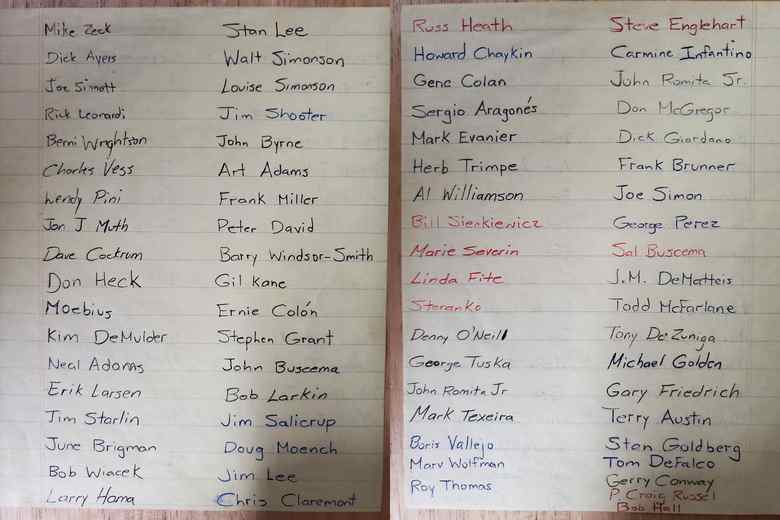 Mike Zeck
Dick Ayers
Joe Sinnott
Rick Leonardi
Berni Wrightson
Charles Vess
Wendy Pini
Jon J Muth
Dave Cockrum
Don Heck
Moebius
Kim DeMulder
Neal Adams
Erik Larsen
Jim Starlin
June Brigman
Bob Wiacek
Larry Hama
Stan Lee
Walt Simonson
Louise Simonson
Jim Shooter
John Byrne
Art Adams
Frank Miller
Peter David
Barry Windsor-Smith
Gil Kane
Ernie Colón
Stephen Grant
John Buscema
Bob Larkin
Jim Salicrup
Doug Moench
Jim Lee
Chris Claremont
Russ Heath
Howard Chaykin
Gene Colan
Sergio Aragonés
Mark Evanier
Herb Trimpe
Al Williamson
Bill Sienkiewicz
Marie Severin
Linda Fite
Steranko
Denny O'Neill
George Tuska
John Romita Jr
Mark Texeira
Boris Vallejo
Marv Wolfman
Roy Thomas
Steve Englehart
Carmine Infantino
John Romita Jr.
Don McGregor
Dick Giordano
Frank Brunner
Joe Simon
George Perez
Sal Buscema
J.M. DeMatteis
Todd McFarlane
Tony DeZuniga
Michael Golden
Gary Friedrich
Terry Austin
Stan Goldberg
Tom DeFalco
Gerry Conway
P. Craig Russel
Bob Hall